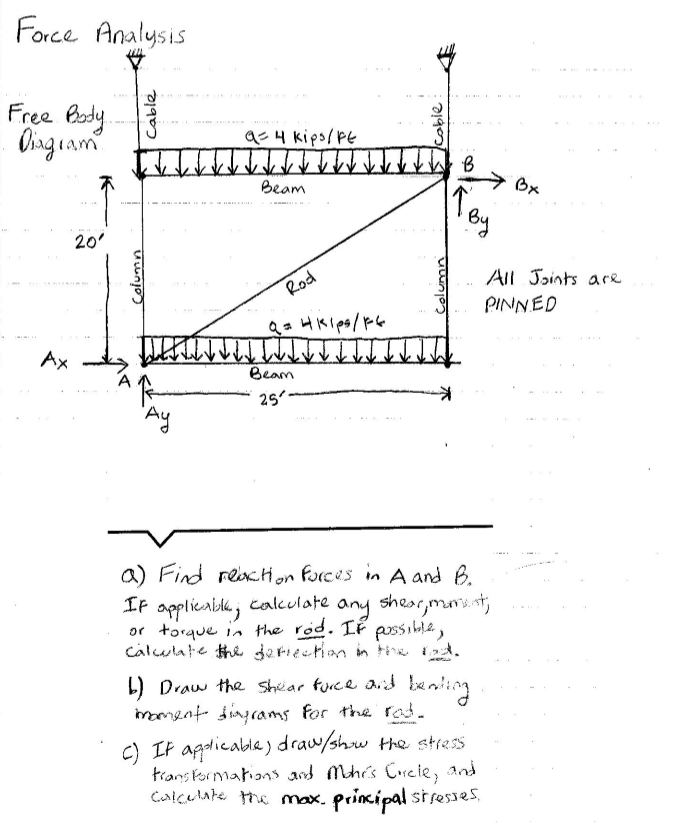 Force Analysis
Free Body
Diagram
Cable
Cable
q=4 kips/ft
B
Bx
Beam
By
20'
Column
Rod
Column
All Joints are
PINNED
q=4kips/ft
Ax
A
Beam
25'
Ay
a) Find reaction forces in A and B.
If applicable, calculate any shear, moment,
or torque in the rod. If possible,
calculate the deflection in the rod.
b) Draw the shear force and bending
moment diagrams for the rod.
c) If applicable, draw/show the stress
transformations and Mohr's Circle, and
calculate the max. principal stresses.